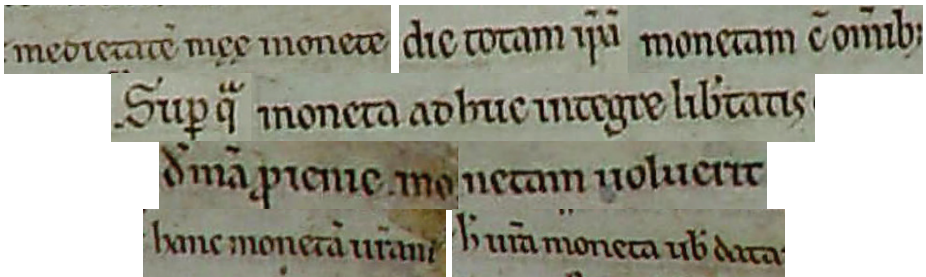 medietatē męę monete die totam ip̄iū monetam c̄ om̄ib;
Sup qͣ moneta adhuc integre lib̄tatis
d̄ mā ꝑuenie. mo netam uoluerit
hanc monetā ur̄am h̄ ur̄a moneta ub̄ data